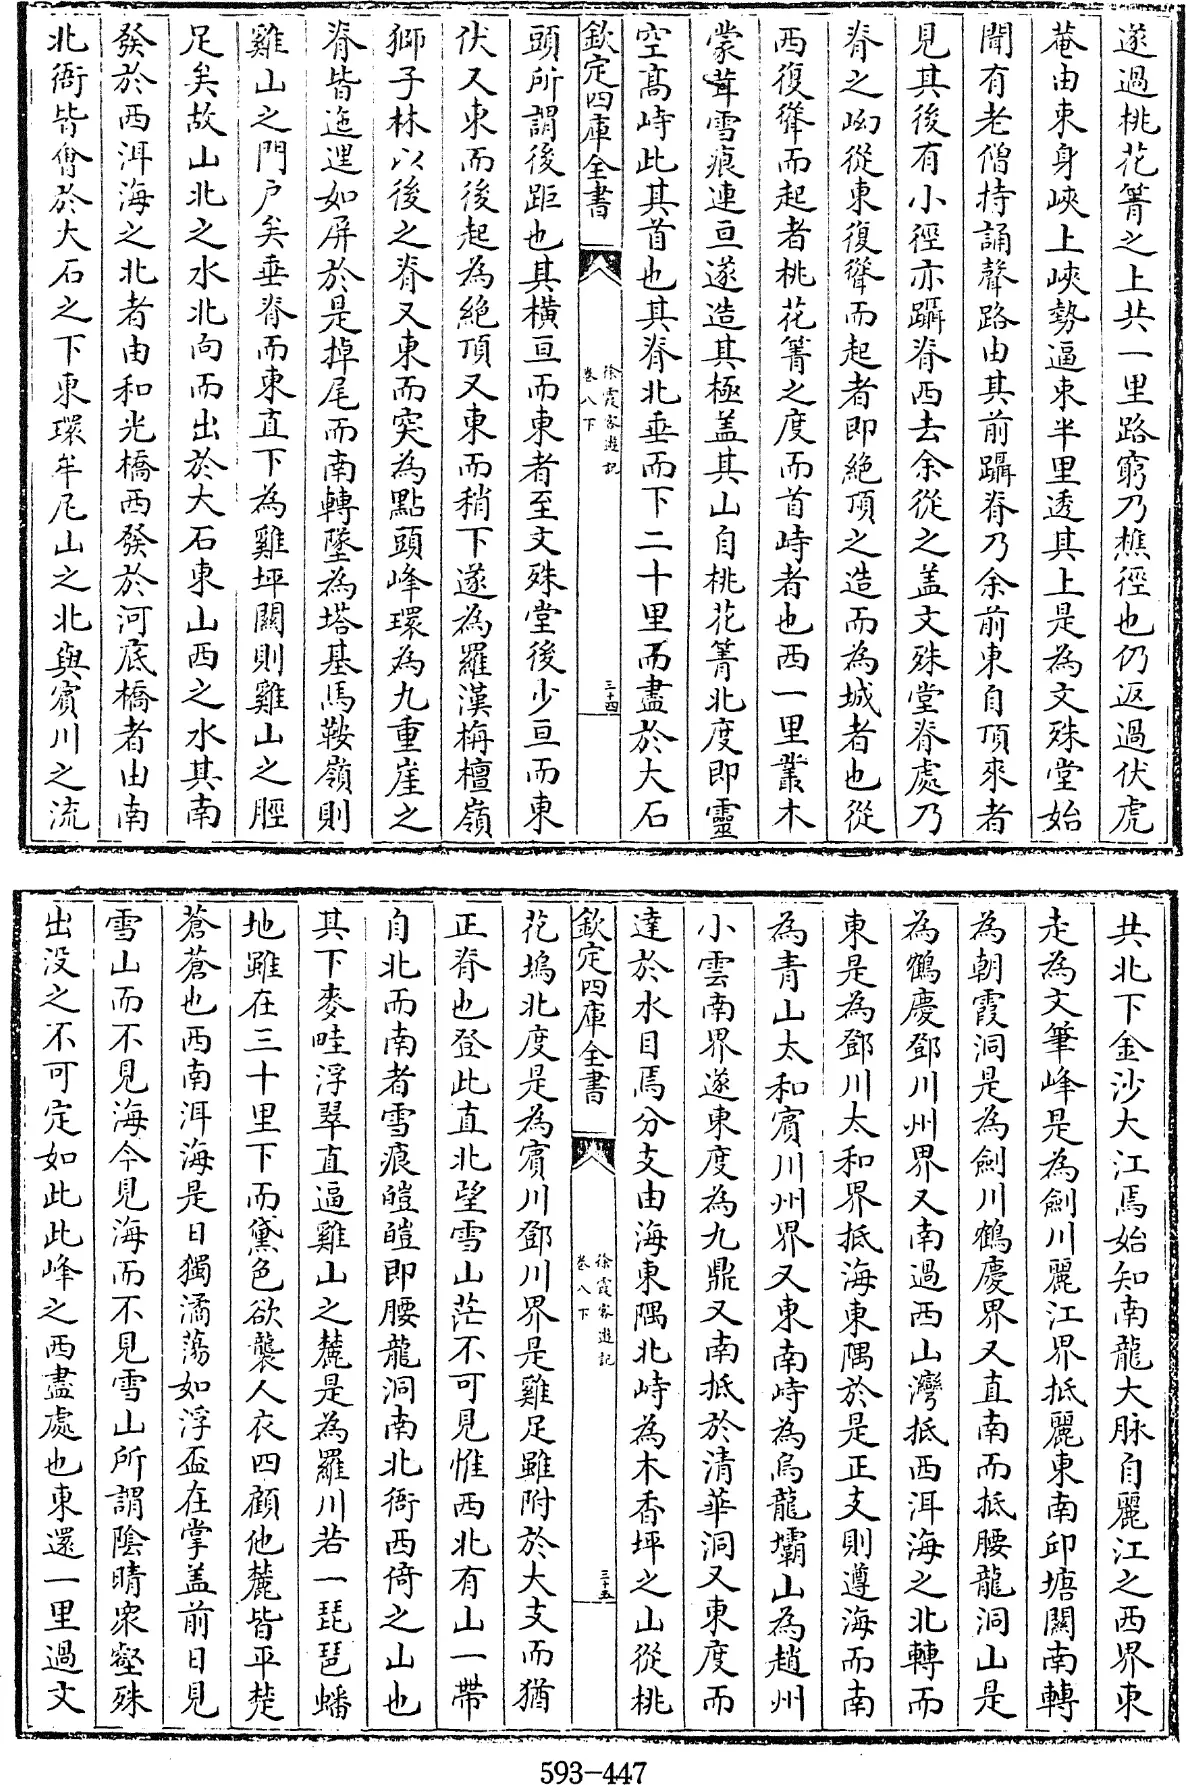 遂過桃花箐之上共一里路窮乃樵徑也仍返過伏虎
菴由東身峽上峽勢逼東半里透其上是為文殊堂始
聞有老僧持誦聲路由其前躡脊乃余前東自頂來者
見其後有小徑亦躡脊西去余從之蓋文殊堂脊處乃
脊之㘭從東復聳而起者即絶頂之造而為城者也從
西復聳而起者桃花箐之度而首峙者也西一里叢木
蒙茸雪痕連亘遂造其極蓋其山自桃花箐北度即靈
空高峙此其首也其脊北垂而下二十里而盡於大石
欽定四庫全書
徐霞客遊記
卷八下
三十四
頭所謂後距也其橫亘而東者至文殊堂後少亘而東
伏又東而後起為絶頂又東而稍下遂為羅漢栴檀嶺
獅子林以後之脊又東而突為點頭峰環為九重崖之
脊皆迤𨓦如屏於是掉尾而南轉墜為塔基馬鞍嶺則
雞山之門户矣垂脊而東直下為雞坪關則雞山之脛
足矣故山北之水北向而出於大石東山西之水其南
發於西洱海之北者由和光橋西發於河底橋者由南
北衙皆㑹於大石之下東環牟尼山之北與賓川之流
共北下金沙大江焉始知南龍大脉自麗江之西界東
走為文筆峰是為劍川麗江界抵麗東南邱塘關南轉
為朝霞洞是為劍川鶴慶界又直南而抵腰龍洞山是
為鶴慶鄧川州界又南過西山灣抵西洱海之北轉而
東是為鄧川太和界抵海東隅於是正支則遵海而南
為青山太和賓川州界又東南峙為烏龍壩山為趙州
小雲南界遂東度為九鼎又南抵於清華洞又東度而
達於水目焉分支由海東隅北峙為木香坪之山從桃
欽定四庫全書
徐霞客遊記
卷八下
三十五
花塢北度是為賓川鄧川界是雞足雖附於大支而猶
正脊也登此直北望雪山茫不可見惟西北有山一帶
自北而南者雪痕皚皚即腰龍洞南北衙西倚之山也
其下麥畦浮翠直逼雞山之麓是為羅川若一琵琶蟠
地雖在三十里下而黛色欲襲人衣四顧他麓皆平楚
蒼蒼也西南洱海是日獨潏蕩如浮盃在掌蓋前日見
雪山而不見海今見海而不見雪山所謂陰晴衆壑殊
出没之不可定如此此峰之西盡處也東還一里過文
593-447